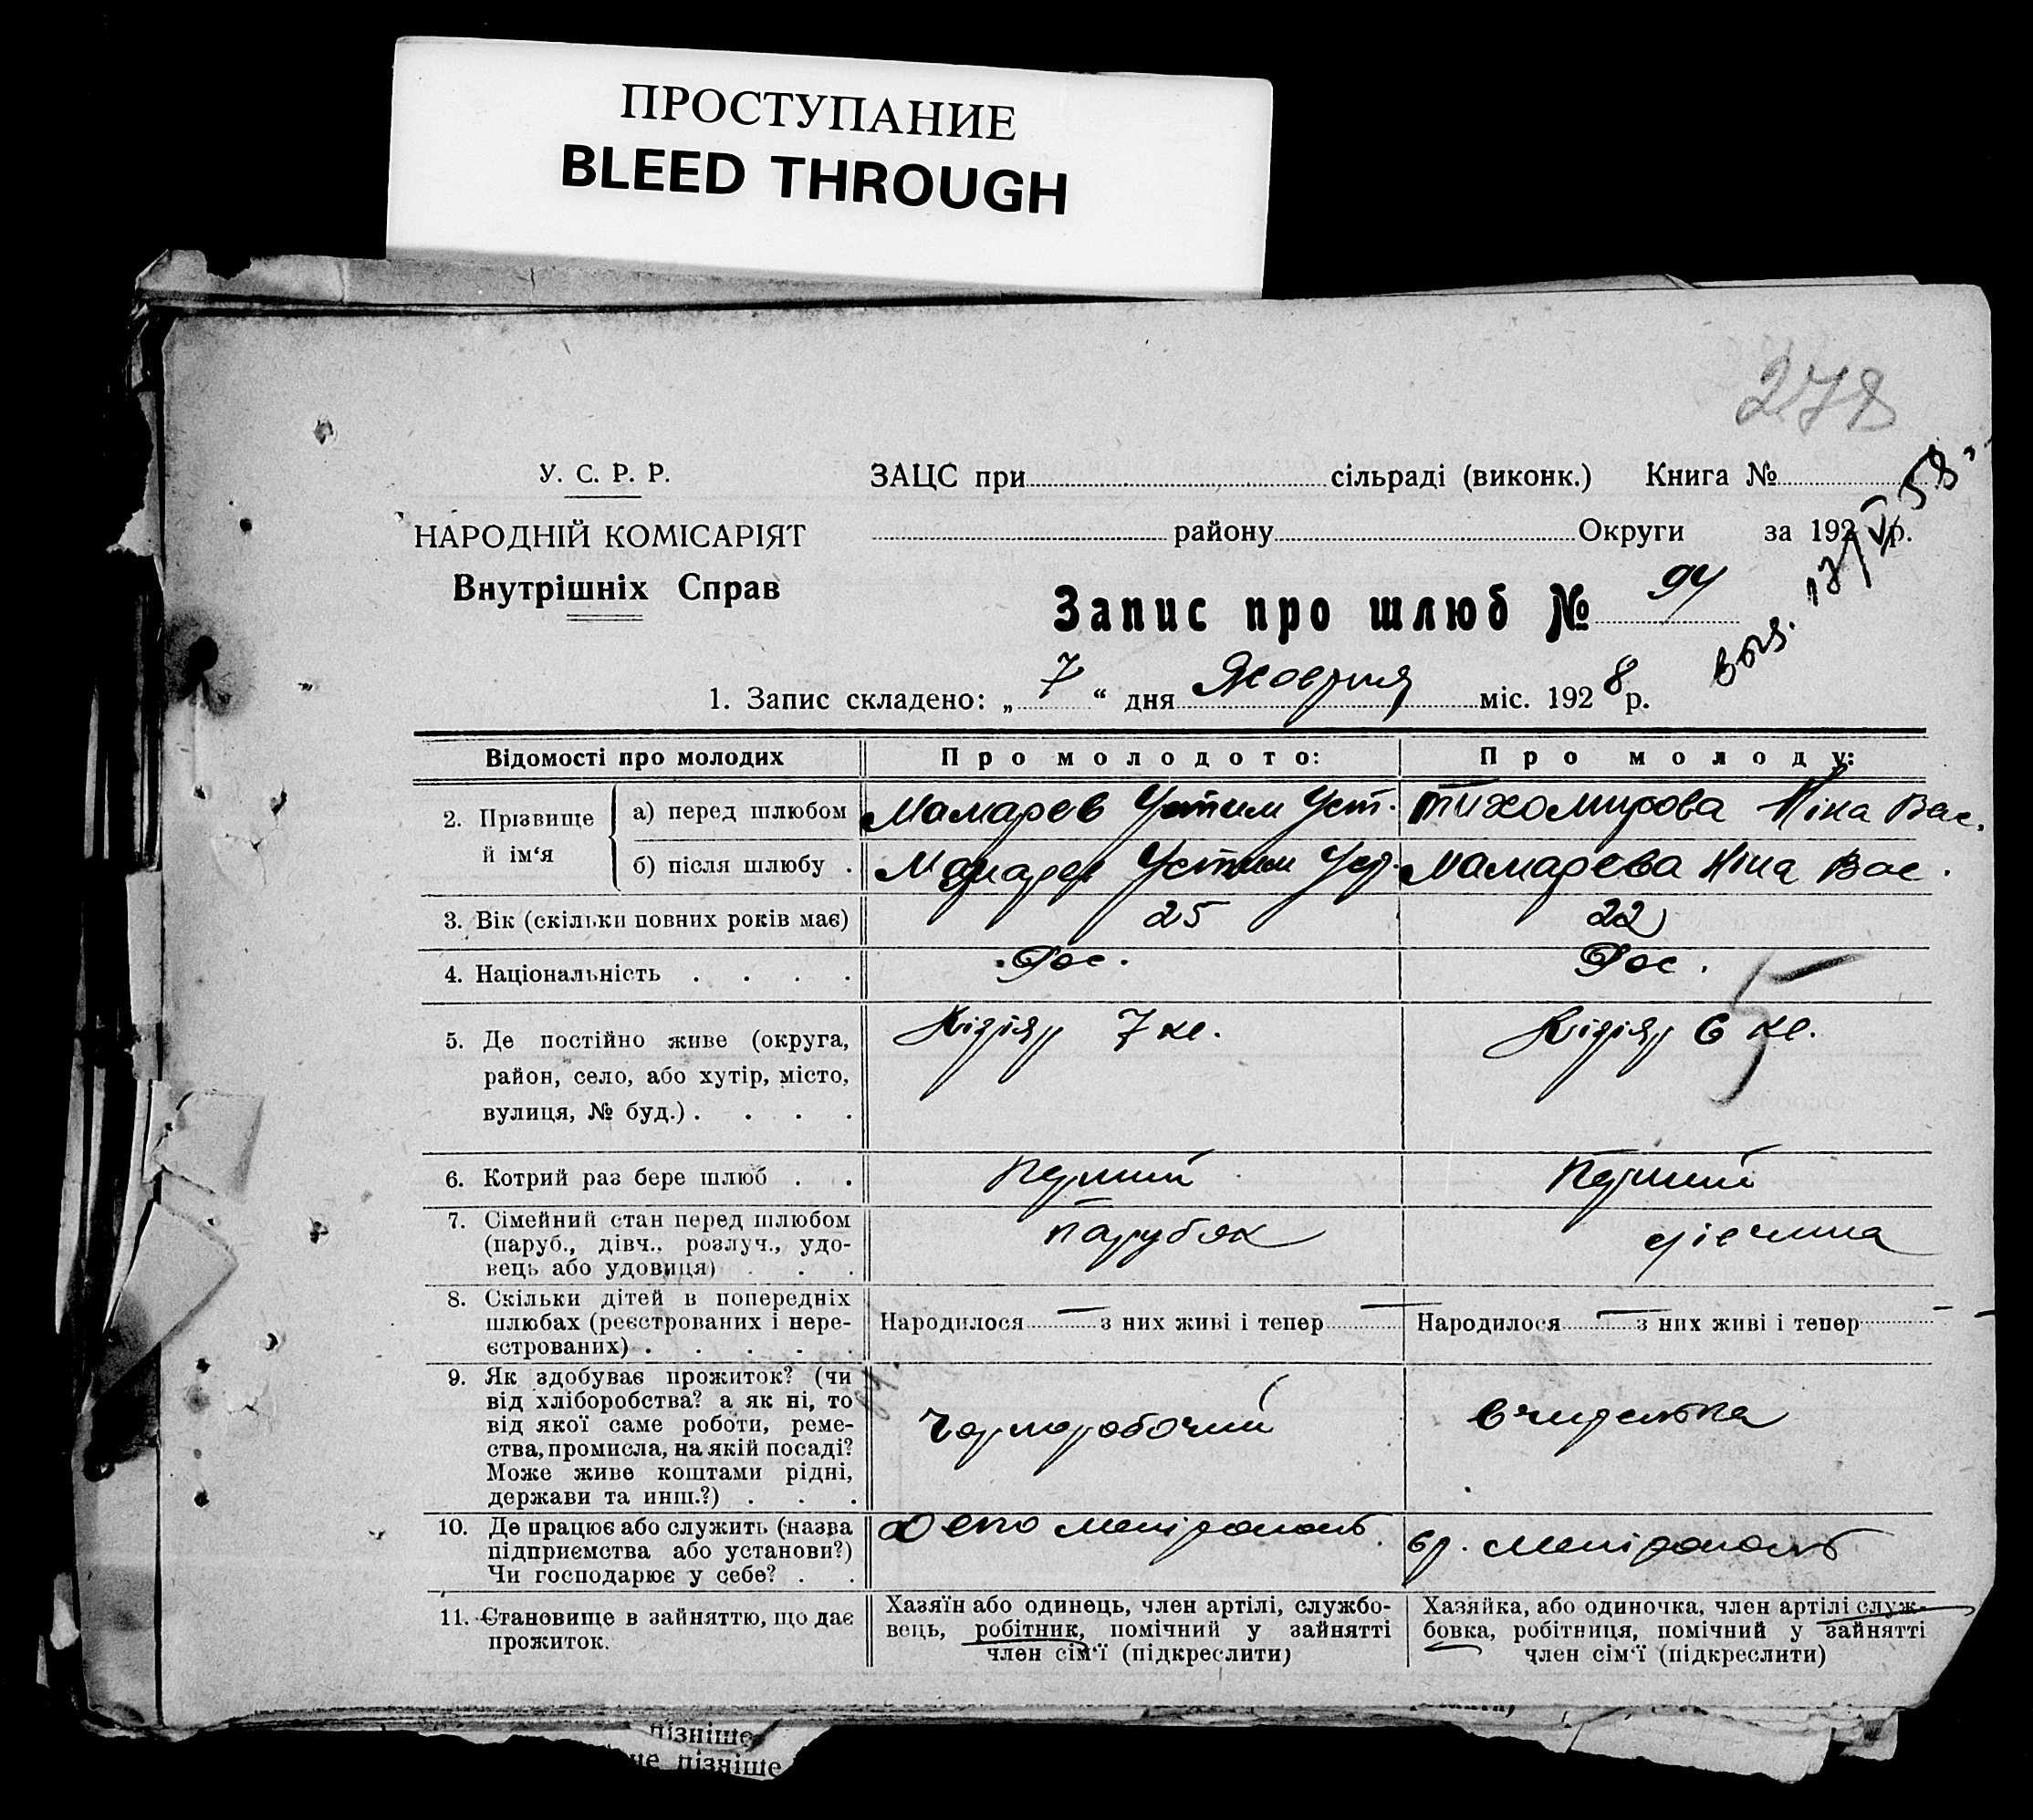 ПРОСТУПАНИЕ
BLEED THROUGH
278
У. С. Р. Р.
НАРОДНІЙ КОМІСАРІЯТ
Внутрішніх Справ
ЗАЦС при сільраді (виконк.) Книга №
району Округи за 192 р.
Запис про шлюб № 94
1. Запис складено: „ 7 “ дня Жовтня міс. 1928 р.
Відомості про молодих Про молодого: Про молоду:
2. Прізвище й ім‘я
а) перед шлюбом Мамарев Устим Уст. Тихомирова Ніна Вас.
б) після шлюбу . Мамарев Устим Уст. Мамарева Ніна Вас.
3. Вік (скільки повних років має) 25 22
4. Національність . . . . Рос. Рос.
5. Де постійно живе (округа,
район, село, або хутір, місто,
вулиця, № буд.) . . . .
Кізіяр 7 кв. Кізіяр 6 кв.
5
6. Котрий раз бере шлюб . . Перший Перший
7. Сімейний стан перед шлюбом
(паруб., дівч., розлуч., удо-
вець або удовиця) . . .
парубок дівчина
8. Скільки дітей в попередніх
шлюбах (реєстрованих і нере-
єстрованих) . . . . .
Народилося — з них живі і тепер — Народилося — з них живі і тепер —
9. Як здобуває прожиток? (чи
від хліборобства? а як ні, то
від якої саме роботи, реме-
ства, промисла, на якій посаді?
Може живе коштами рідні,
держави та инш.?) . . .
Чорноробочий вчителька
10. Де працює або служить (назва
підприємства або установи?)
Чи господарює у себе? . .
Депо Мелітополь Мелітополь
11. Становище в зайняттю, що дає
прожиток.
Хазяїн або одинець, член артілі, службо-
вець, робітник, помічний у зайнятті
член сім‘ї (підкреслити)
Хазяйка, або одиночка, член артілі служ-
бовка, робітниця, помічний у зайнятті
член сім‘ї (підкреслити)
пізніше
не пізніше